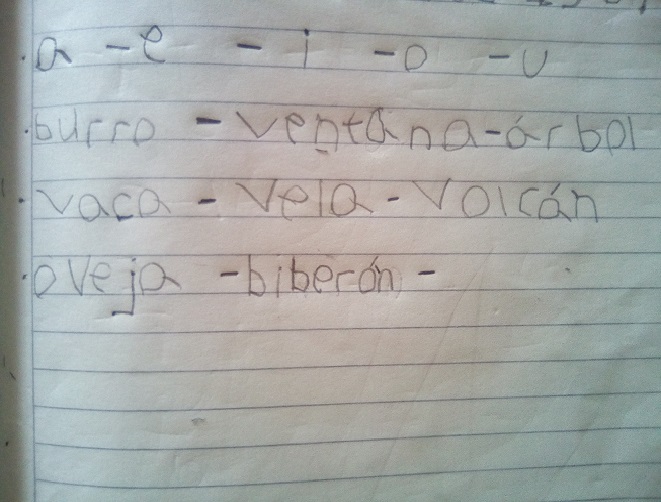 a - e - i - o - u
burro - ventana - árbol
vaca - vela - volcán
oveja - biberón -